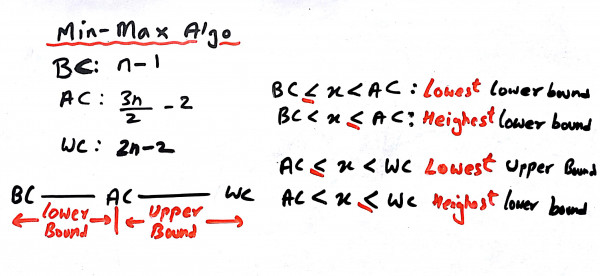 Min-Max Algo
BC: n-1
AC: 3n/2 - 2
WC: 2n-2
BC AC WC
lower Bound Upper Bound
BC ≤ x < AC : Lowest lower bound
BC < x ≤ AC: Heighest lower bound
AC ≤ x < WC Lowest Upper Bound
AC < x ≤ WC Heighest lower bound